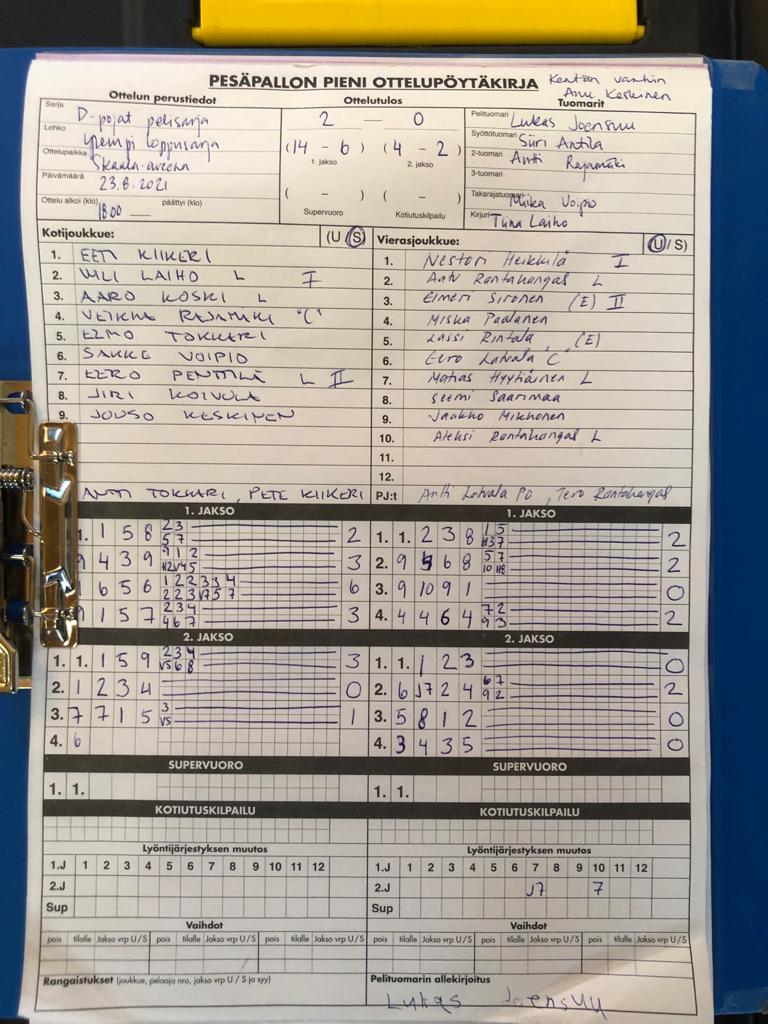 PESÄPALLON PIENI OTTELUPÖYTÄKIRJA
Kentän vanhin
Anu Keskinen
Ottelun perustiedot
Ottelutulos
Tuomarit
Sarja D-pojat pelisarja
Lohko ylempi loppusarja
Ottelupaikka Skaala-areena
Päivämäärä 23.8.2021
Ottelu alkoi (klo) 18.00 päättyi (klo)
2 — 0
(14 - 6) (4 - 2)
1. jakso 2. jakso
( - ) ( - )
Supervuoro Kotiutuskilpailu
Pelituomari Lukas Joensuu
Syöttötuomari Siiri Antila
2-tuomari Antti Rajamäki
3-tuomari
Takarajatuomari Miika Voipio
Kirjuri Tiina Laiho
Kotijoukkue: (U/S)
1. EETI KIIKERI
2. VILI LAIHO L I
3. AARO KOSKI L
4. VEIKKA RAJAMÄKI "C"
5. ELMO TOKKARI
6. SAKKE VOIPIO
7. EERO PENTTILÄ L II
8. JIRI KOIVULA
9. JOUSO KESKINEN
ANTTI TOKKARI, PETE KIIKERI
Vierasjoukkue: (U/S)
1. Nestori Heikkilä I
2. Aatu Rantakangas L
3. Elmeri Sironen (E) II
4. Miska Paalanen
5. Lassi Rintala (E)
6. Eero Latvala "C"
7. Matias Hyytiäinen L
8. Seemi Saarimaa
9. Jaakko Mikkonen
10. Aleksi Rantakangas L
11.
12.
PJ:t Antti Latvala PO, Tero Rantakangas
1. JAKSO
1. 1 5 8 2 3 2
5 7
9 4 3 9 9 1 2 3
H2 V4 5
1 6 5 6 1 2 2 3 3 4 6
2 2 3 V7 5 7
9 1 5 7 2 3 4 3
4 6 7
1. JAKSO
1. 1. 2 3 8 1 5 2
H3 7
2. 9 5 6 8 5 7 2
10 H8
3. 9 10 9 1 0
4. 4 4 6 4 7 2 2
9 3
2. JAKSO
1. 1. 1 5 9 2 3 4 3
V5 6 8
2. 1 2 3 4 0
3. 7 7 1 5 3 1
V5
4. 6
2. JAKSO
1. 1. 1 2 3 0
2. 6 J7 2 4 6 7 2
9 2
3. 5 8 1 2 0
4. 3 4 3 5 0
SUPERVUORO
1. 1.
SUPERVUORO
1. 1.
KOTIUTUSKILPAILU
KOTIUTUSKILPAILU
Lyöntijärjestyksen muutos
1.J 1 2 3 4 5 6 7 8 9 10 11 12
2.J
Sup
Lyöntijärjestyksen muutos
1.J 1 2 3 4 5 6 7 8 9 10 11 12
2.J J7 7
Sup
Vaihdot
pois tilalle Jakso vrp U/S pois tilalle Jakso vrp U/S pois tilalle Jakso vrp U/S
Vaihdot
pois tilalle Jakso vrp U/S pois tilalle Jakso vrp U/S pois tilalle Jakso vrp U/S
Rangaistukset (joukkue, pelaaja nro, jakso vrp U / S ja syy)
Pelituomarin allekirjoitus
Lukas Joensuu